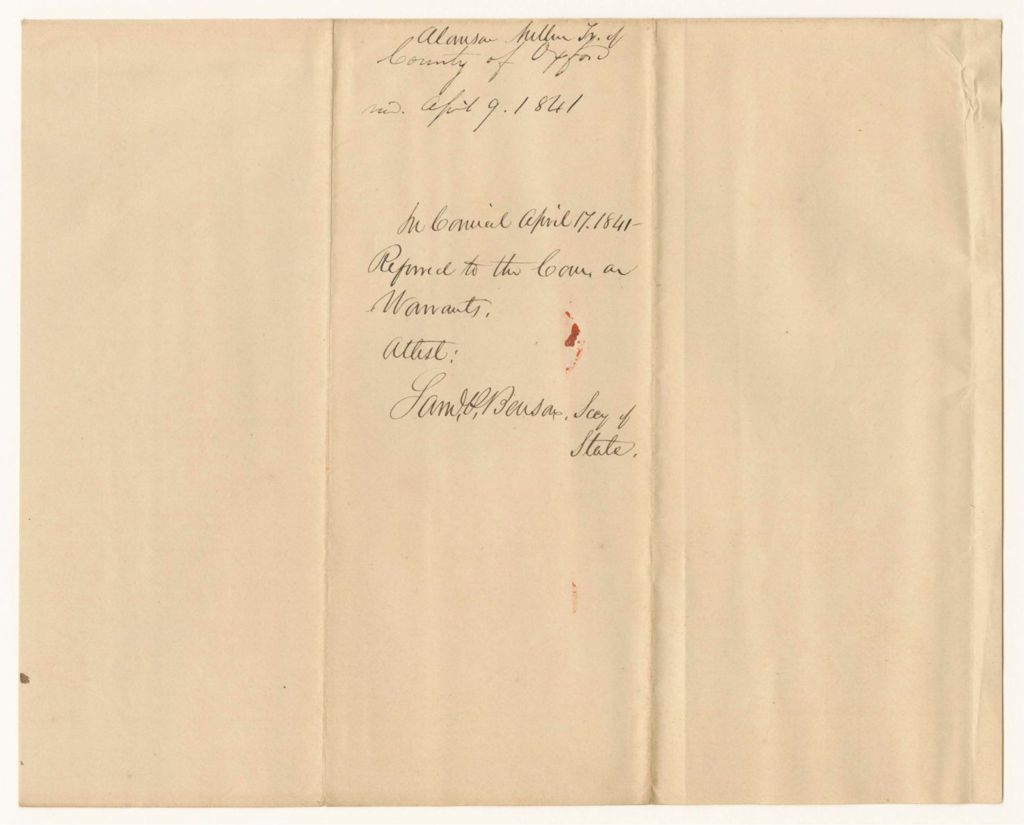 Alanson Mellen Tr. of
County of Oxford
April 9. 1841
In Council April 17. 1841-
Referred to the Com. on
Warrants.
Attest:
Saml. P. Benson, Secy of
State.